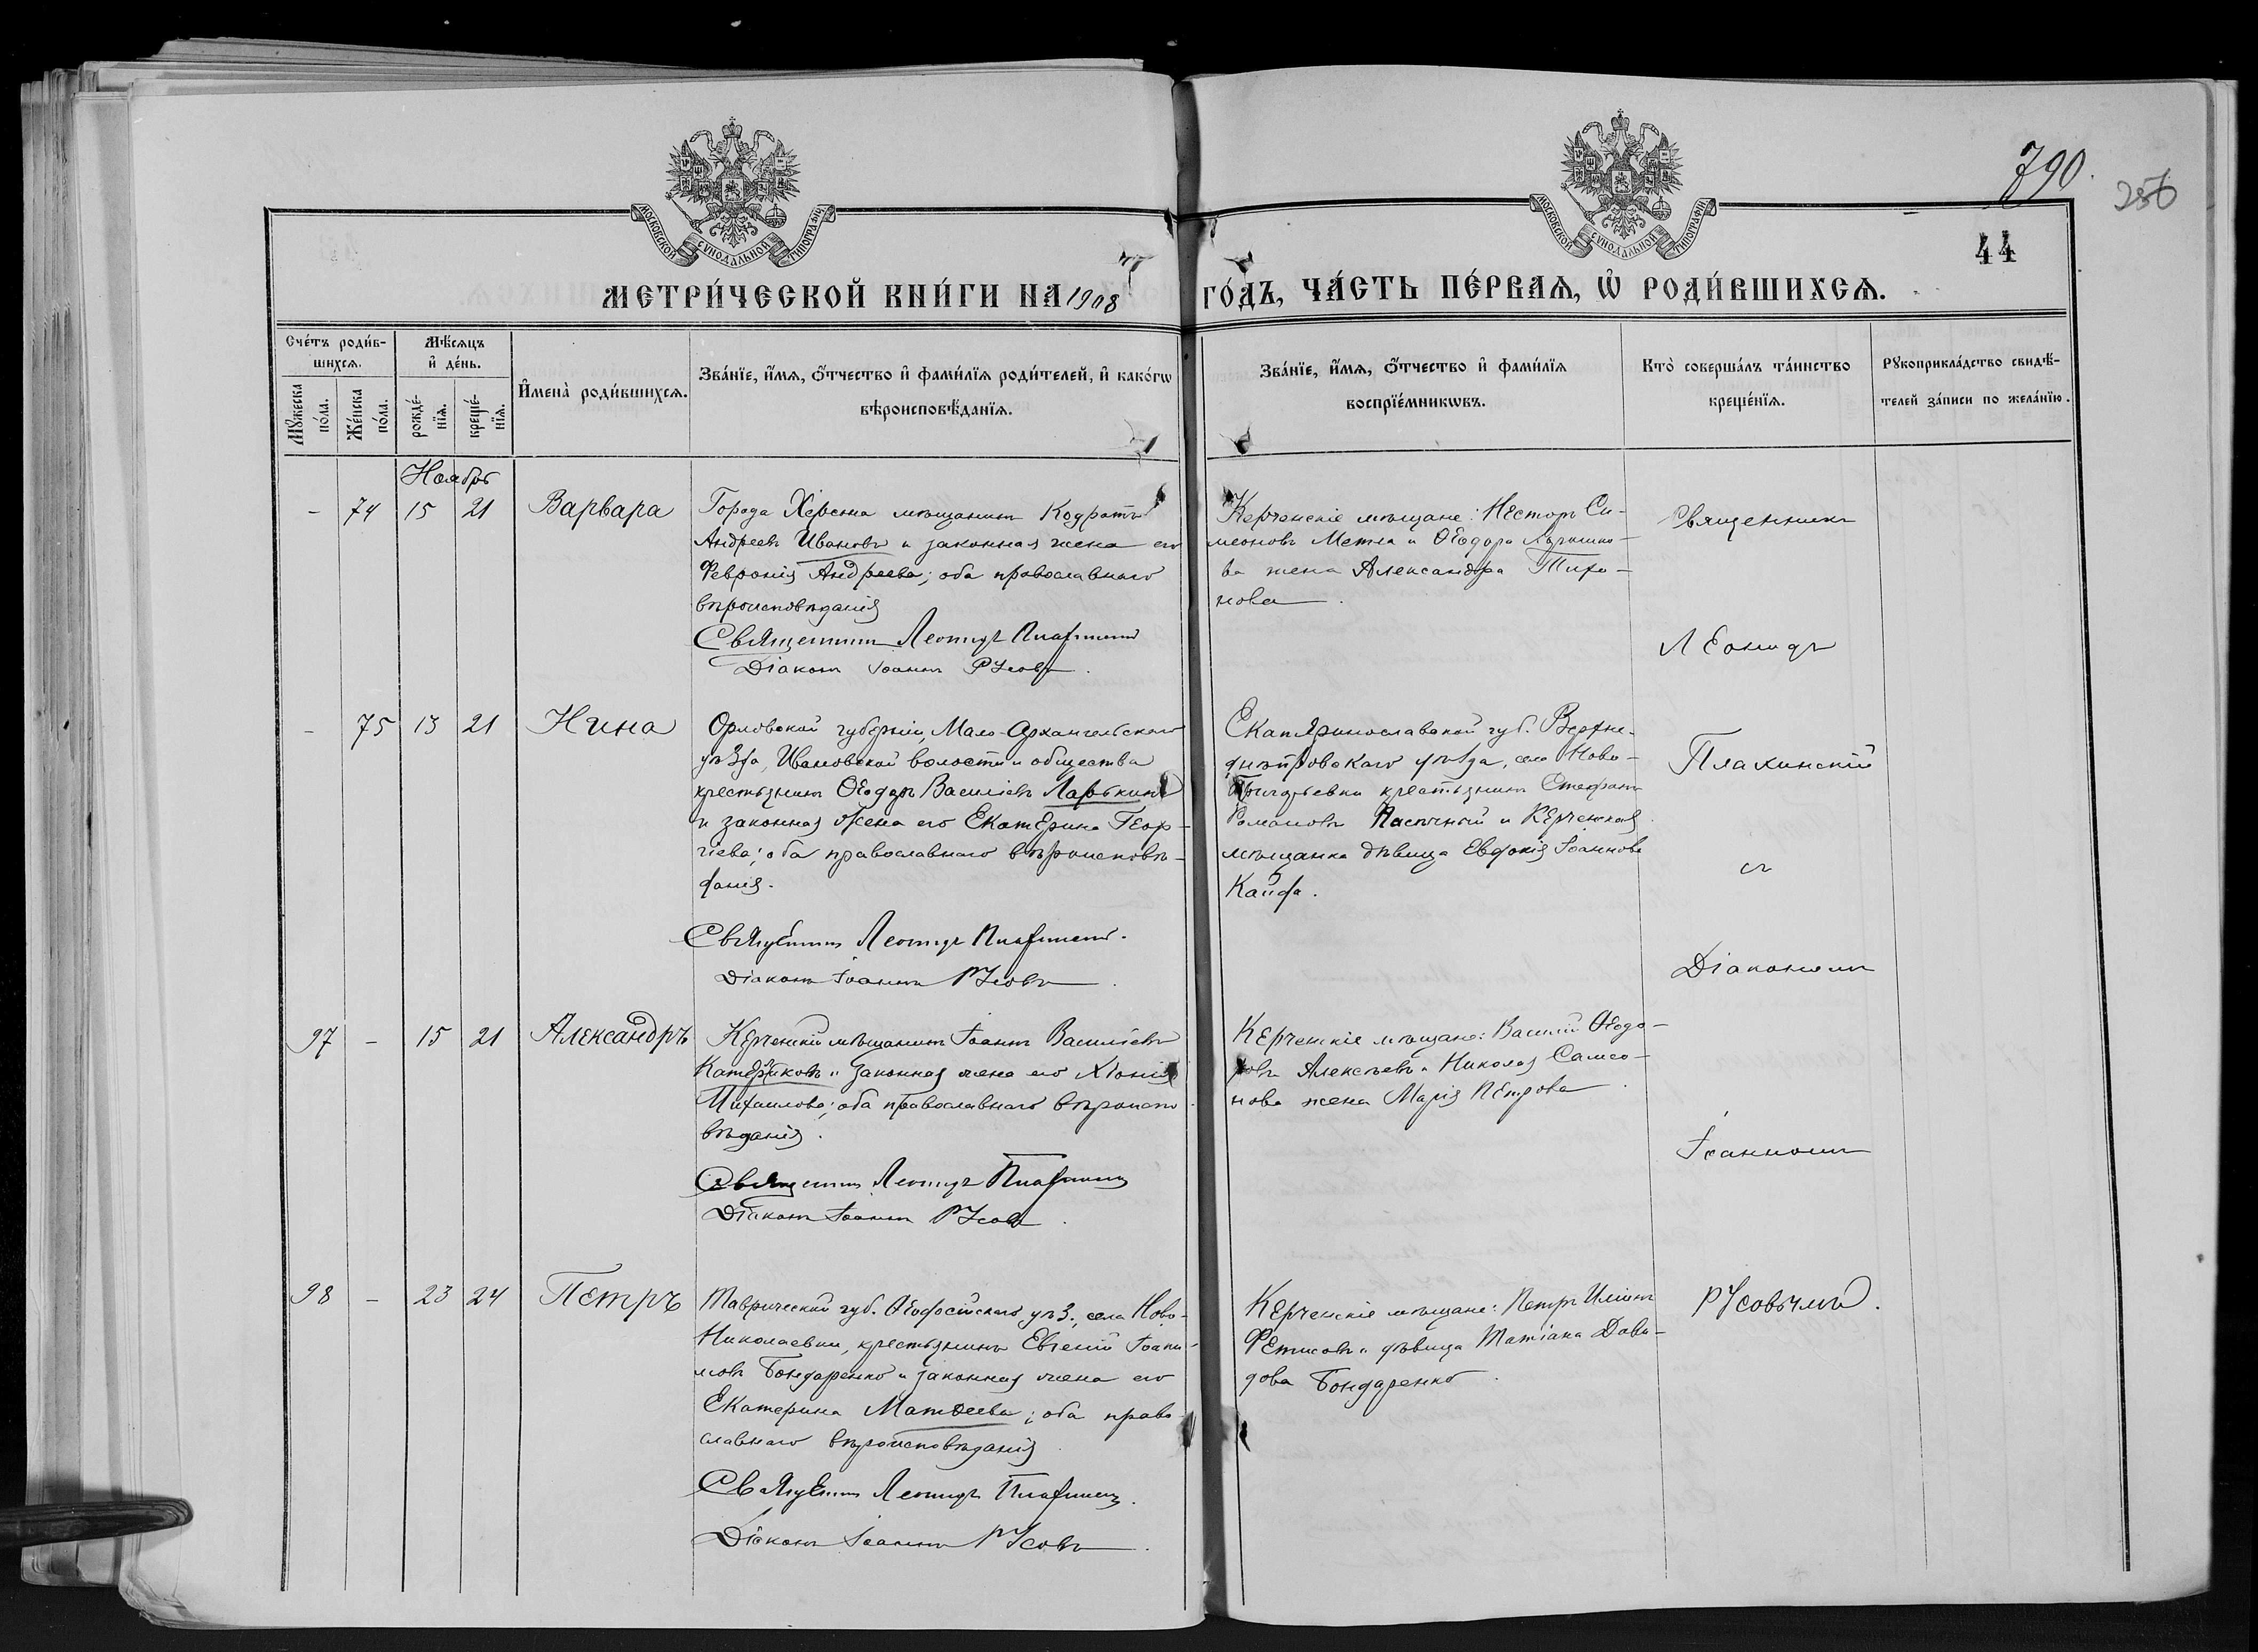 790.
256
44
МОСКОВСКОЙ СѴНОДАЛЬНОЙ ТИПОГРАФІИ
МОСКОВСКОЙ СѴНОДАЛЬНОЙ ТИПОГРАФІИ
МЕТРИ́ЧЕСКОЙ КНИ́ГИ НА 1908 ГО́ДЪ, ЧА́СТЬ ПЕ́РВАѦ, Ѡ҆ РОДИ́ВШИХСѦ.
Сче́тъ роди́в-
шихсѧ.
Мꙋ́жеска по́ла.
Же́нска по́ла.
Мѣ́сѧцъ
и҆ де́нь.
рожде́-
нїѧ.
креще́-
нїѧ.
И҆мена̀ роди́вшихсѧ.
Зва́нїе, и҆́мѧ, ѻ҆́тчество и҆ фами́лїѧ роди́телей, и҆ како́гѡ
вѣроисповѣ́данїѧ.
Зва́нїе, и҆́мѧ, ѻ҆́тчество и҆ фами́лїѧ
воспрїе́мникѡвъ.
Кто̀ соверша́лъ та́инство
креще́нїѧ.
Рꙋкоприкла́дство свидѣ́-
телей за́писи по жела́нїю.
Ноябрь
- 74 15 21 Варвара
Города Херсона мѣщанинъ Кодратъ
Андреевъ Ивановъ и законная жена его
Феврония Андреева; оба православнаго
вѣроисповѣданія
Священникъ Леонидъ Плахинскій
Діаконъ Іоаннъ Русовъ.
Керченскіе мѣщане: Несторъ Си-
меоновъ Метла и Ѳеодора
ва жена Александра Тихо-
нова.
- 75 13 21 Нина
Орловской губерніи, Мало-Архангельскаго
уѣзда, Ивановской волости и общества
крестьянинъ Ѳеодоръ Василіевъ Ларькинъ
и законная жена его Екатерина Геор-
гіева; оба православнаго вѣроисповѣ-
данія.
Священникъ Леонидъ Плахинскій.
Діаконъ Іоаннъ Русовъ.
Екатеринославской губ. Верхне-
днѣпровскаго уѣзда, села Ново-
крестьянинъ Стефанъ
Романовъ Пасѣчный и Керченская
мѣщанка дѣвица Евдокія Іоаннова
Кайда.
97 - 15 21 Александръ
Керченскій мѣщанинъ Іоаннъ Василіевъ
и законная жена его Хіонія
Михаилова; оба православнаго вѣроиспо
вѣданія.
Священникъ Леонидъ Плахинскій
Діаконъ Іоаннъ Русовъ.
Керченскіе мѣщане: Василій Ѳеодо-
ровъ Алексѣевъ и Николая Самсо-
нова жена Марія Петрова.
98 - 23 24 Петръ
Таврической губ. Ѳеодосійскаго уѣз., села Ново-
Николаевки, крестьянинъ Евгеній Іоаки-
мовъ Бондаренко и законная жена его
Екатерина Матѳеева; оба право-
славнаго вѣроисповѣданія.
Священникъ Леонидъ Плахинскій.
Діаконъ Іоаннъ Русовъ.
Керченскіе мѣщане: Петръ Иліинъ
Фетисовъ и дѣвица Татіана Дави-
дова Бондаренко.
Священникъ
Леонидъ
Плахинскій
съ
Діакономъ
Іоанномъ
Русовымъ.